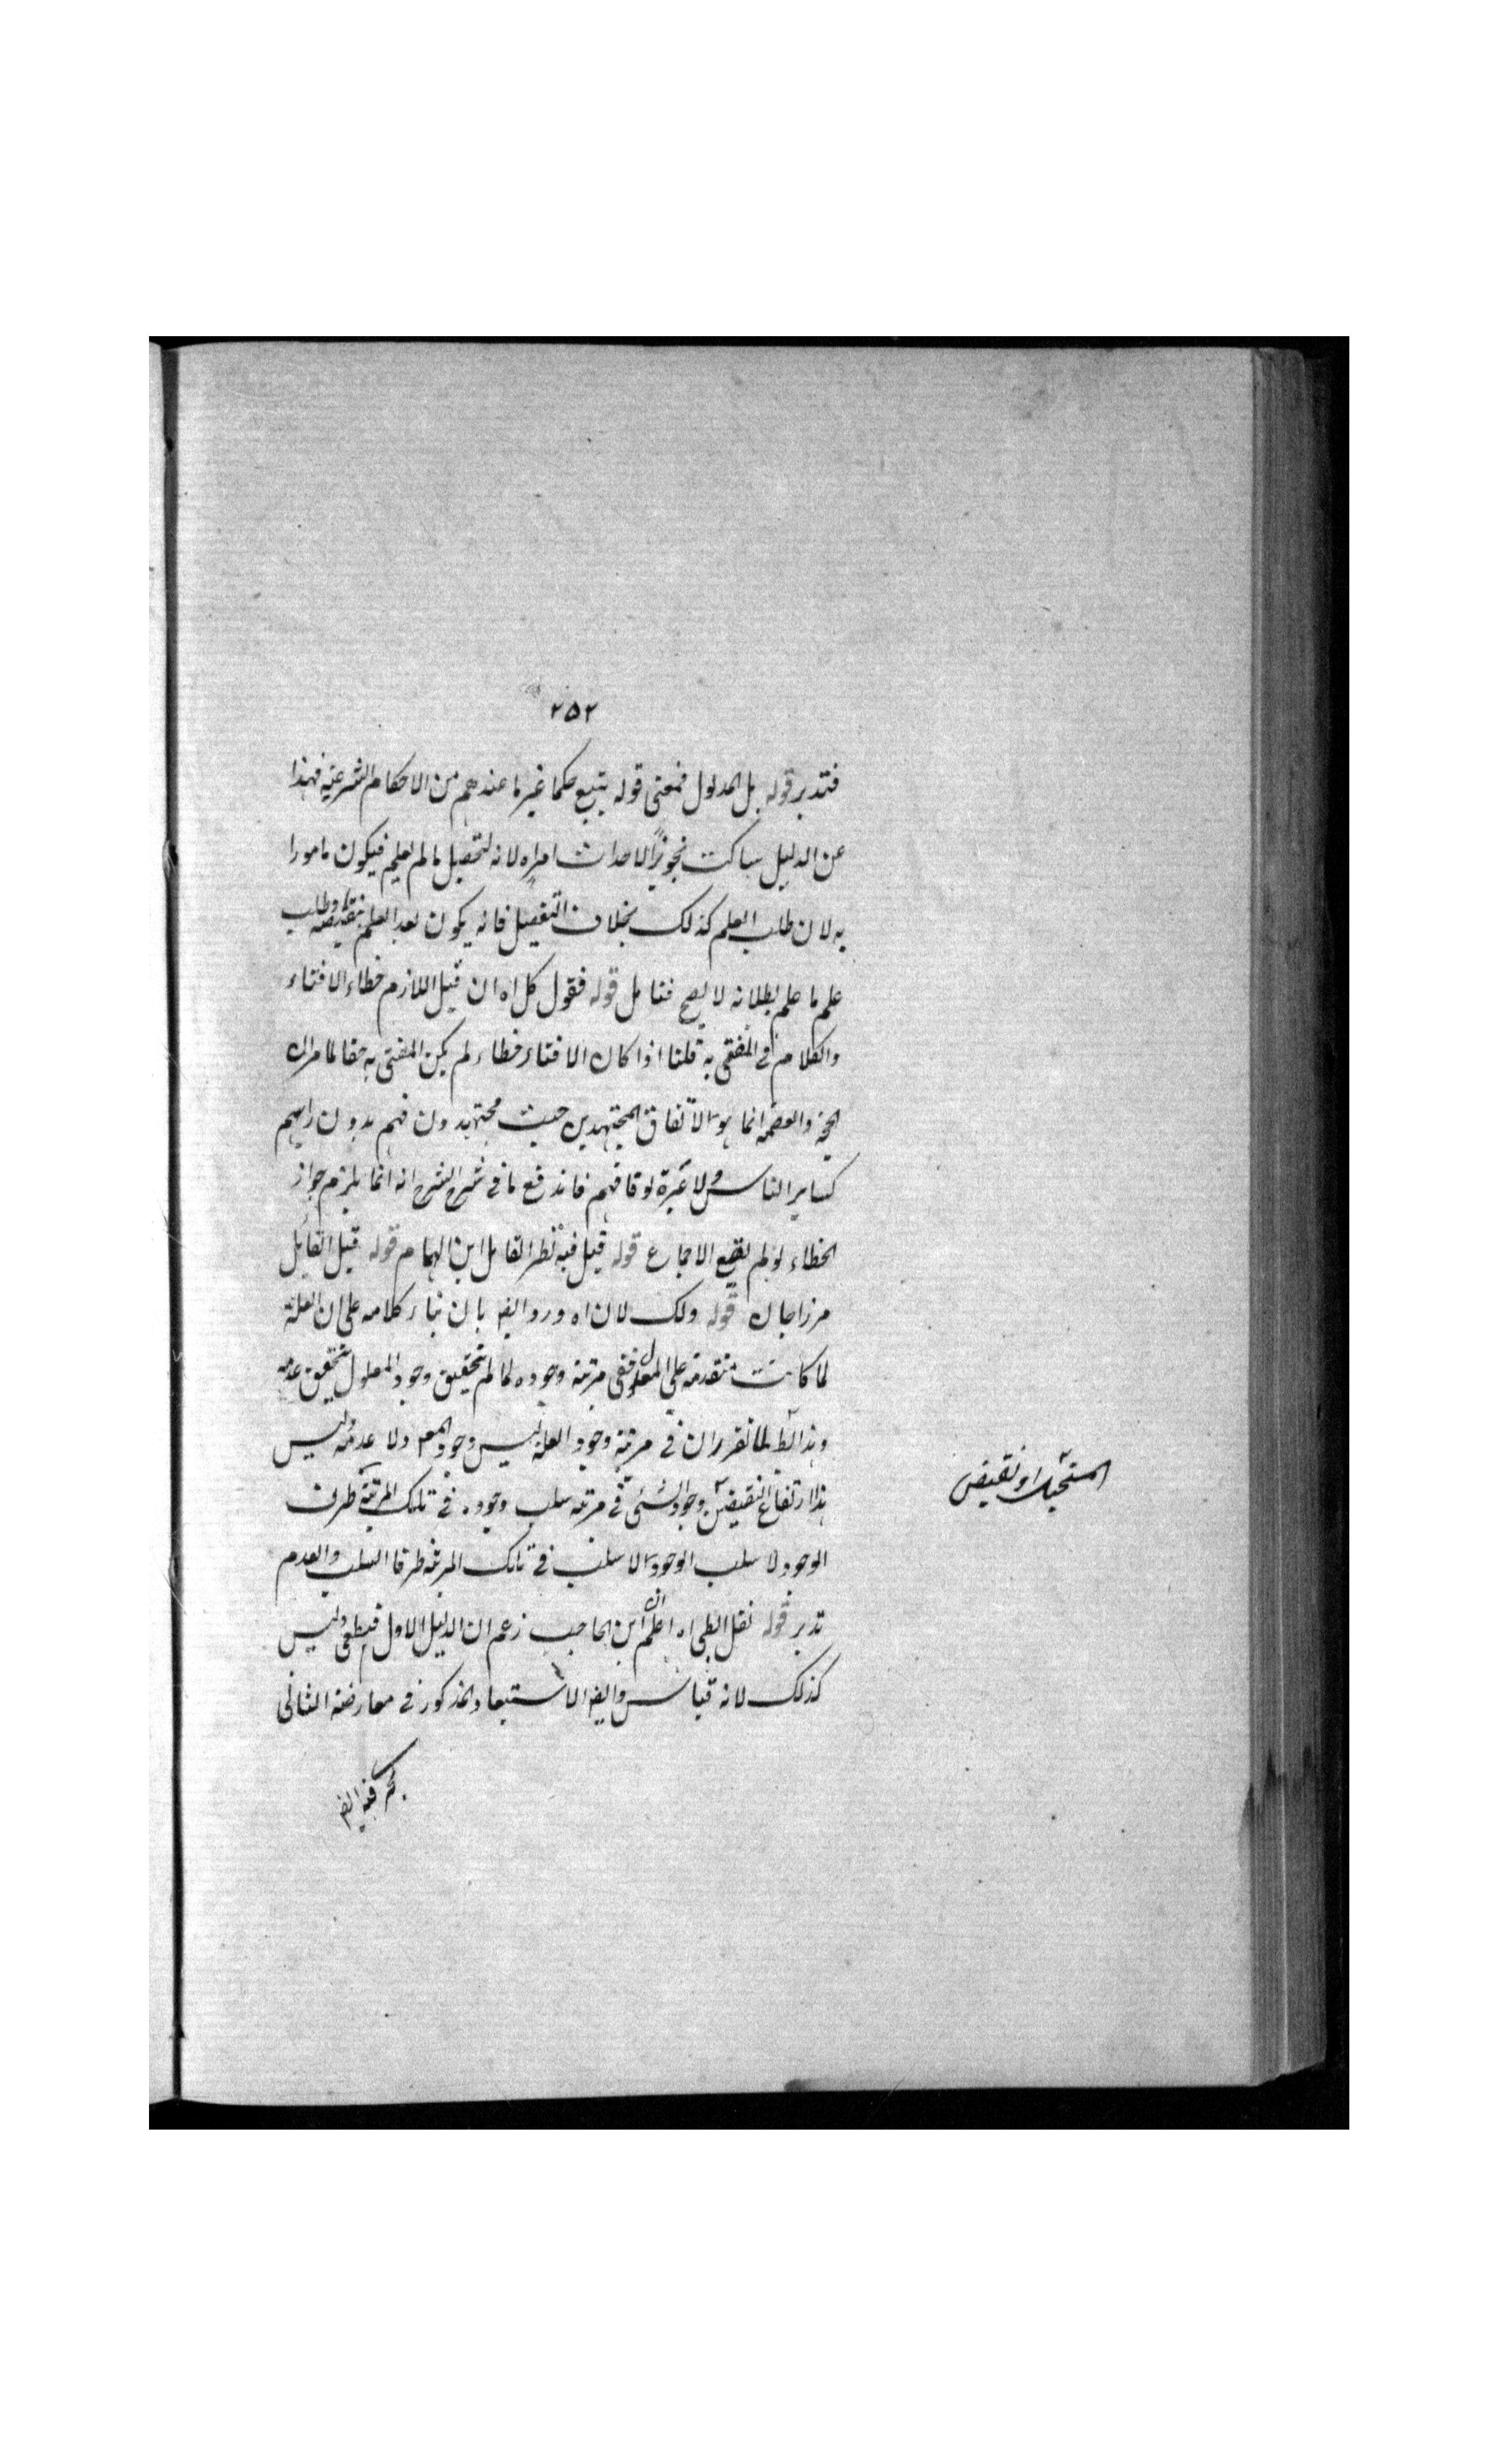 ٢٥٢
فتدبر قوله بل المدلول فمعنى قوله يتبع حكما غير ما عندهم من الاحكام الشرعية فهذا
عن الدليل ساكت تجويز الاحداث امارة لانه لتحصيل ما لم يعلم فيكون مامورا
به لان طلب العلم كذلك بخلاف التفصيل فانه يكون بعد العلم بنقيضه وطلب
علم ما علم بطلانه لا يصح فتامل قوله فقول كل اه ان قيل اللازم خطاء الافتاء
والكلام في المفتى به قلنا اذا كان الافتاء خطاء لم يكن المفتى به حقا لما مر ان
الحجة والعصمة انما هو الاتفاق المجتهدين حيث مجتهدون فهم بدون رايهم
كساير الناس ولا عبرة لوفاقهم فاندفع ما في شرح الشرح انه انما يلزم جواز
الخطاء لو لم يقع الاجماع قوله قيل فيه نظر القايل ابن الهمام قوله قيل القايل
مرزاجان قوله ولك لان اه ورد ايضا بان بناء كلامه على ان العلة
لما كانت متقدمة على المعلول ففي مرتبة وجوده لما لم يتحقق وجود المعلول يتحقق عدمه
وهذا بط لما تقرر ان في مرتبة وجود العلة ليس وجود المعم ولا عدمه وليس
هذا ارتفاع النقيضين وجود الشئ في مرتبة سلب وجوده في تلك المرتبة طرف
الوجود لا سلب الوجود الا سلب في تلك المرتبة طرفا السلب والعدم
تدبر قوله نقل الطى اه اعلم ان ابن الحاجب زعم ان الدليل الاول قطعى وليس
كذلك لانه قياس وايضا الاستبعاد المذكور في معارضة الثانى
المستحيل او نقيض